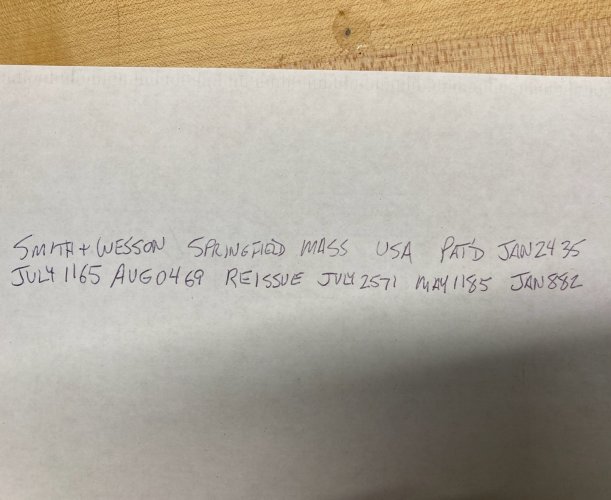 SMITH + WESSON SPRINGFIELD MASS USA PAT'D JAN 24 35
JULY 1165 AUG 04 69 REISSUE JULY 2571 MAY 1185 JAN 882